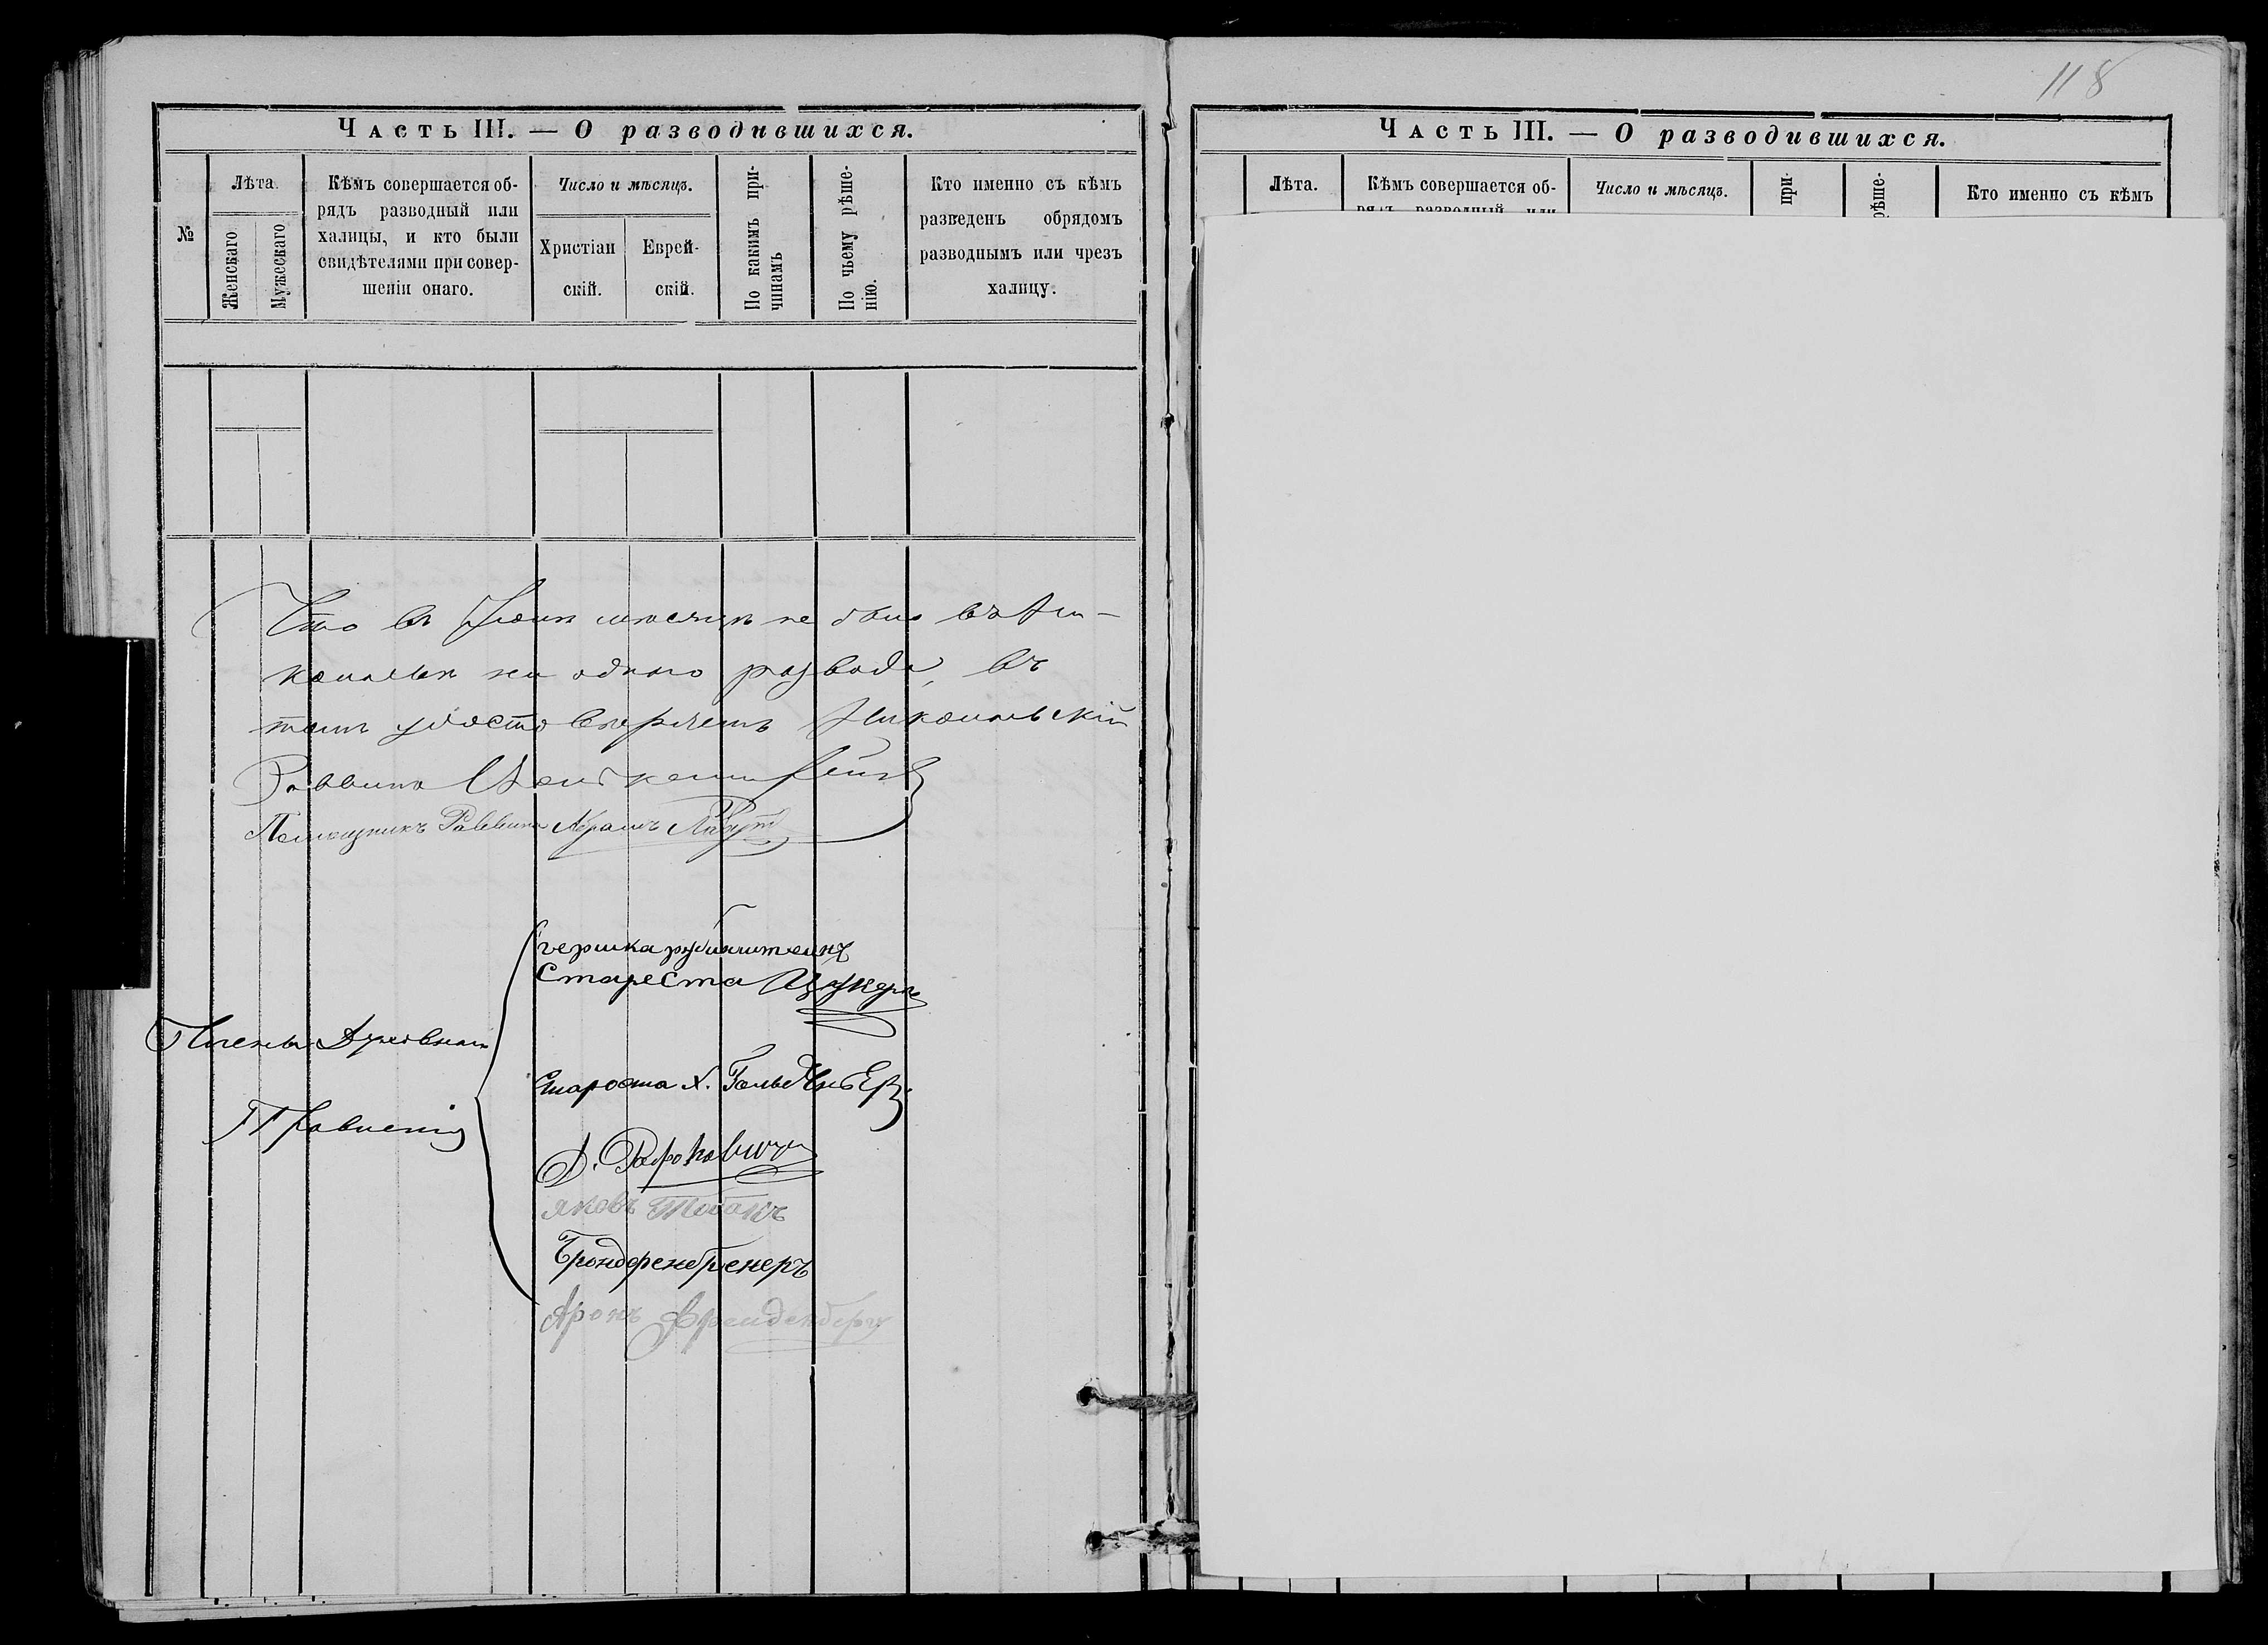 118
Часть III. — О разводившихся.
№
Лѣта.
Женскаго
Мужескаго
Кѣмъ совершается об-
рядъ разводный или
халицы, и кто были
свидѣтелями при совер-
шеніи онаго.
Число и мѣсяцъ.
Христіан
скій.
Еврей-
скій.
По какимъ при-
чинамъ
По чьему рѣше-
нію.
Кто именно съ кѣмъ
разведенъ обрядомъ
разводнымъ или чрезъ
халицу.
Что въ мѣсяцѣ не было въ Ни-
ни одного развода, въ
томъ удостовѣряемъ
Раввинъ
Помощникъ Раввина Абрамъ
Члены Духовнаго
Правленія
Староста Цукеръ
Староста Х. Гольденберг
Яковъ
Аронъ Фрейденбергъ
Часть III. — О разводившихся.
Лѣта.
Кѣмъ совершается об-
рядъ разводный или
Число и мѣсяцъ.
при-
рѣше-
Кто именно съ кѣмъ